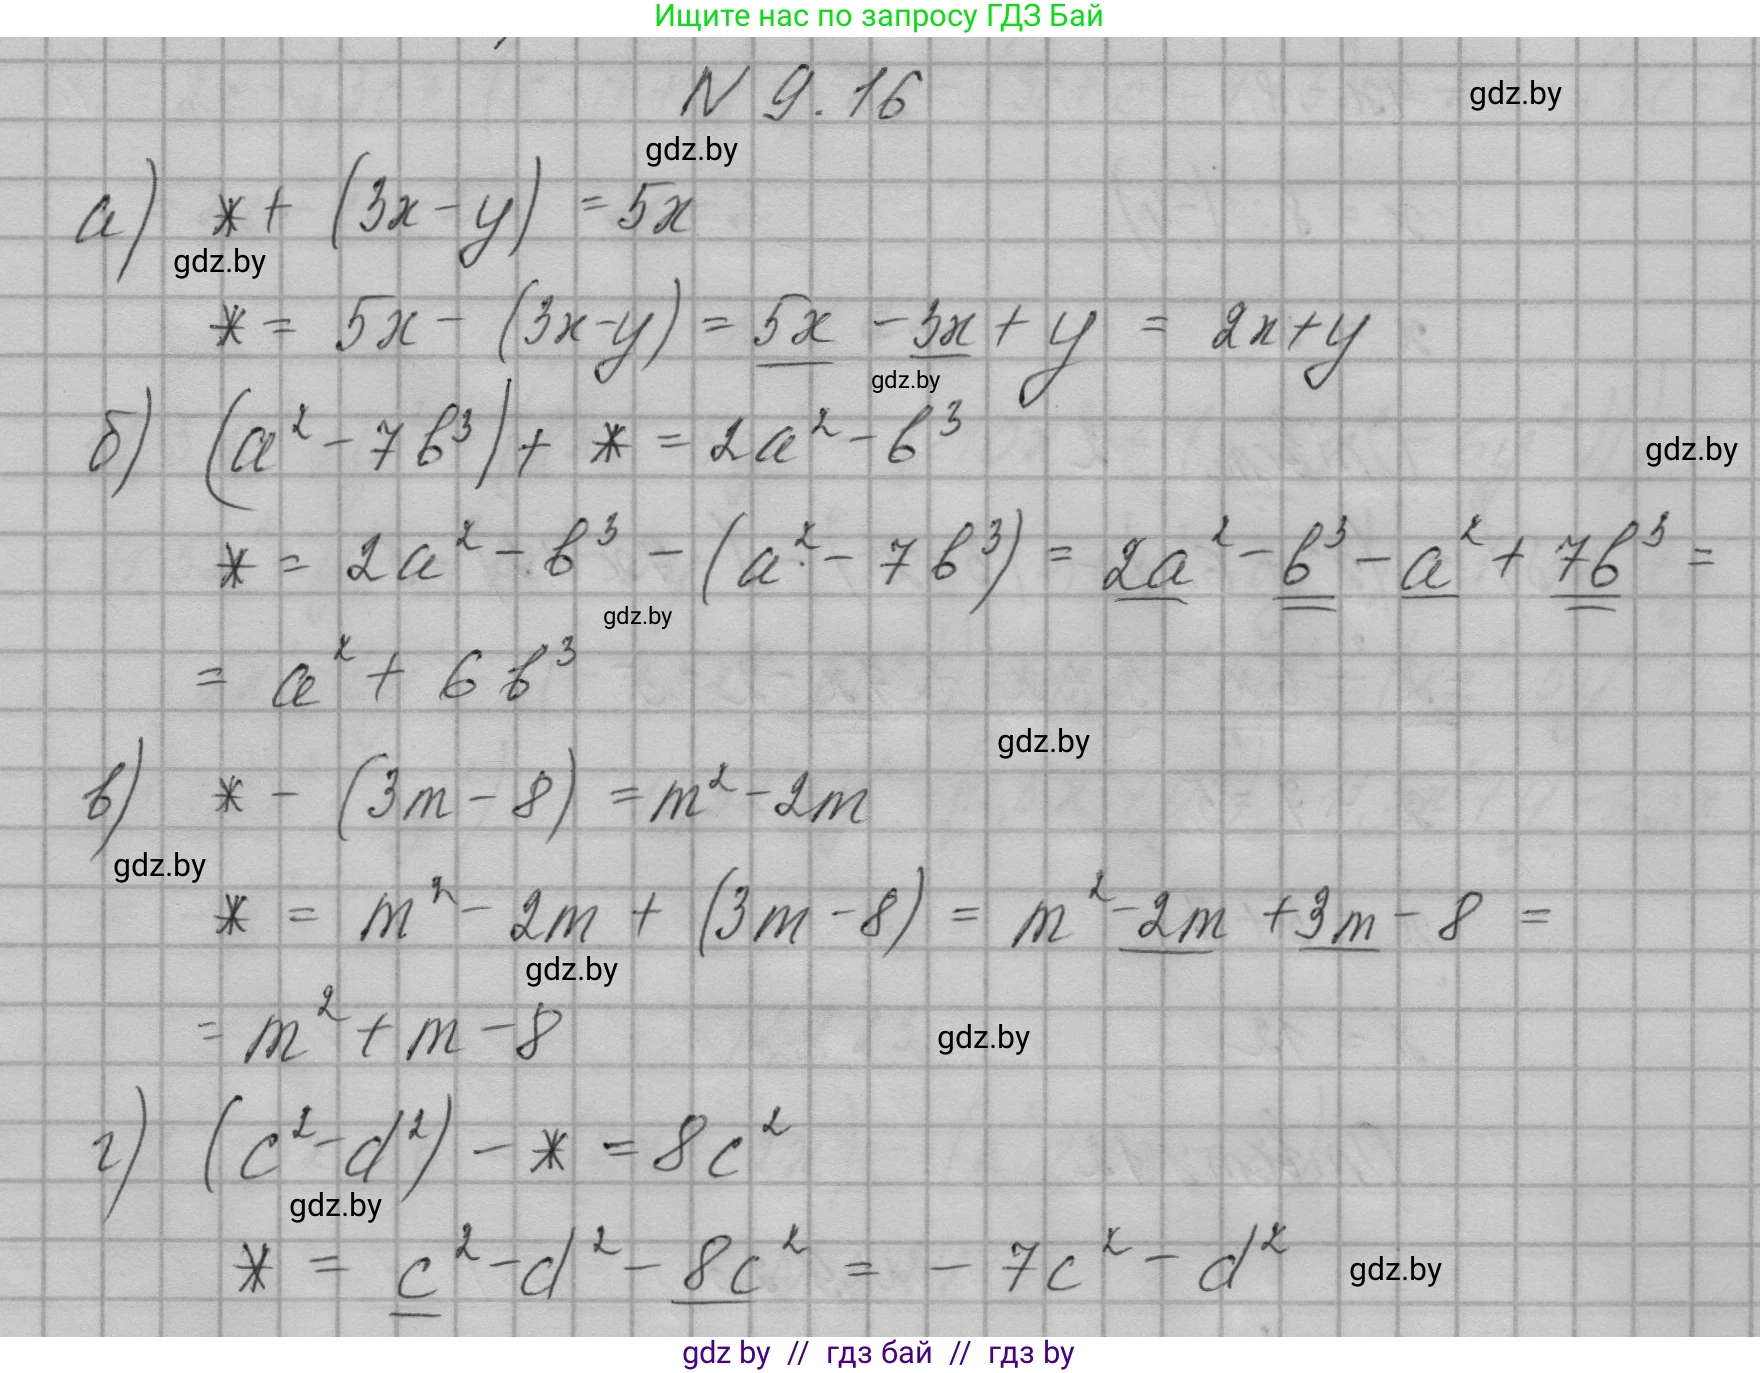 Ищите нас по запросу ГДЗ Бай
N 9.16
gdz.by
gdz.by
а) * + (3x - y) = 5x
gdz.by
* = 5x - (3x - y) = 5x - 3x + y = 2x + y
gdz.by
б) (a² - 7b³) + * = 2a² - b³
gdz.by
* = 2a² - b³ - (a² - 7b³) = 2a² - b³ - a² + 7b³ =
gdz.by
= a² + 6b³
gdz.by
в) * - (3m - 8) = m² - 2m
gdz.by
* = m² - 2m + (3m - 8) = m² - 2m + 3m - 8 =
gdz.by
= m² + m - 8
gdz.by
г) (c² - d²) - * = 8c²
gdz.by
* = c² - d² - 8c² = - 7c² - d²
gdz.by
gdz by // гдз бай // гдз by